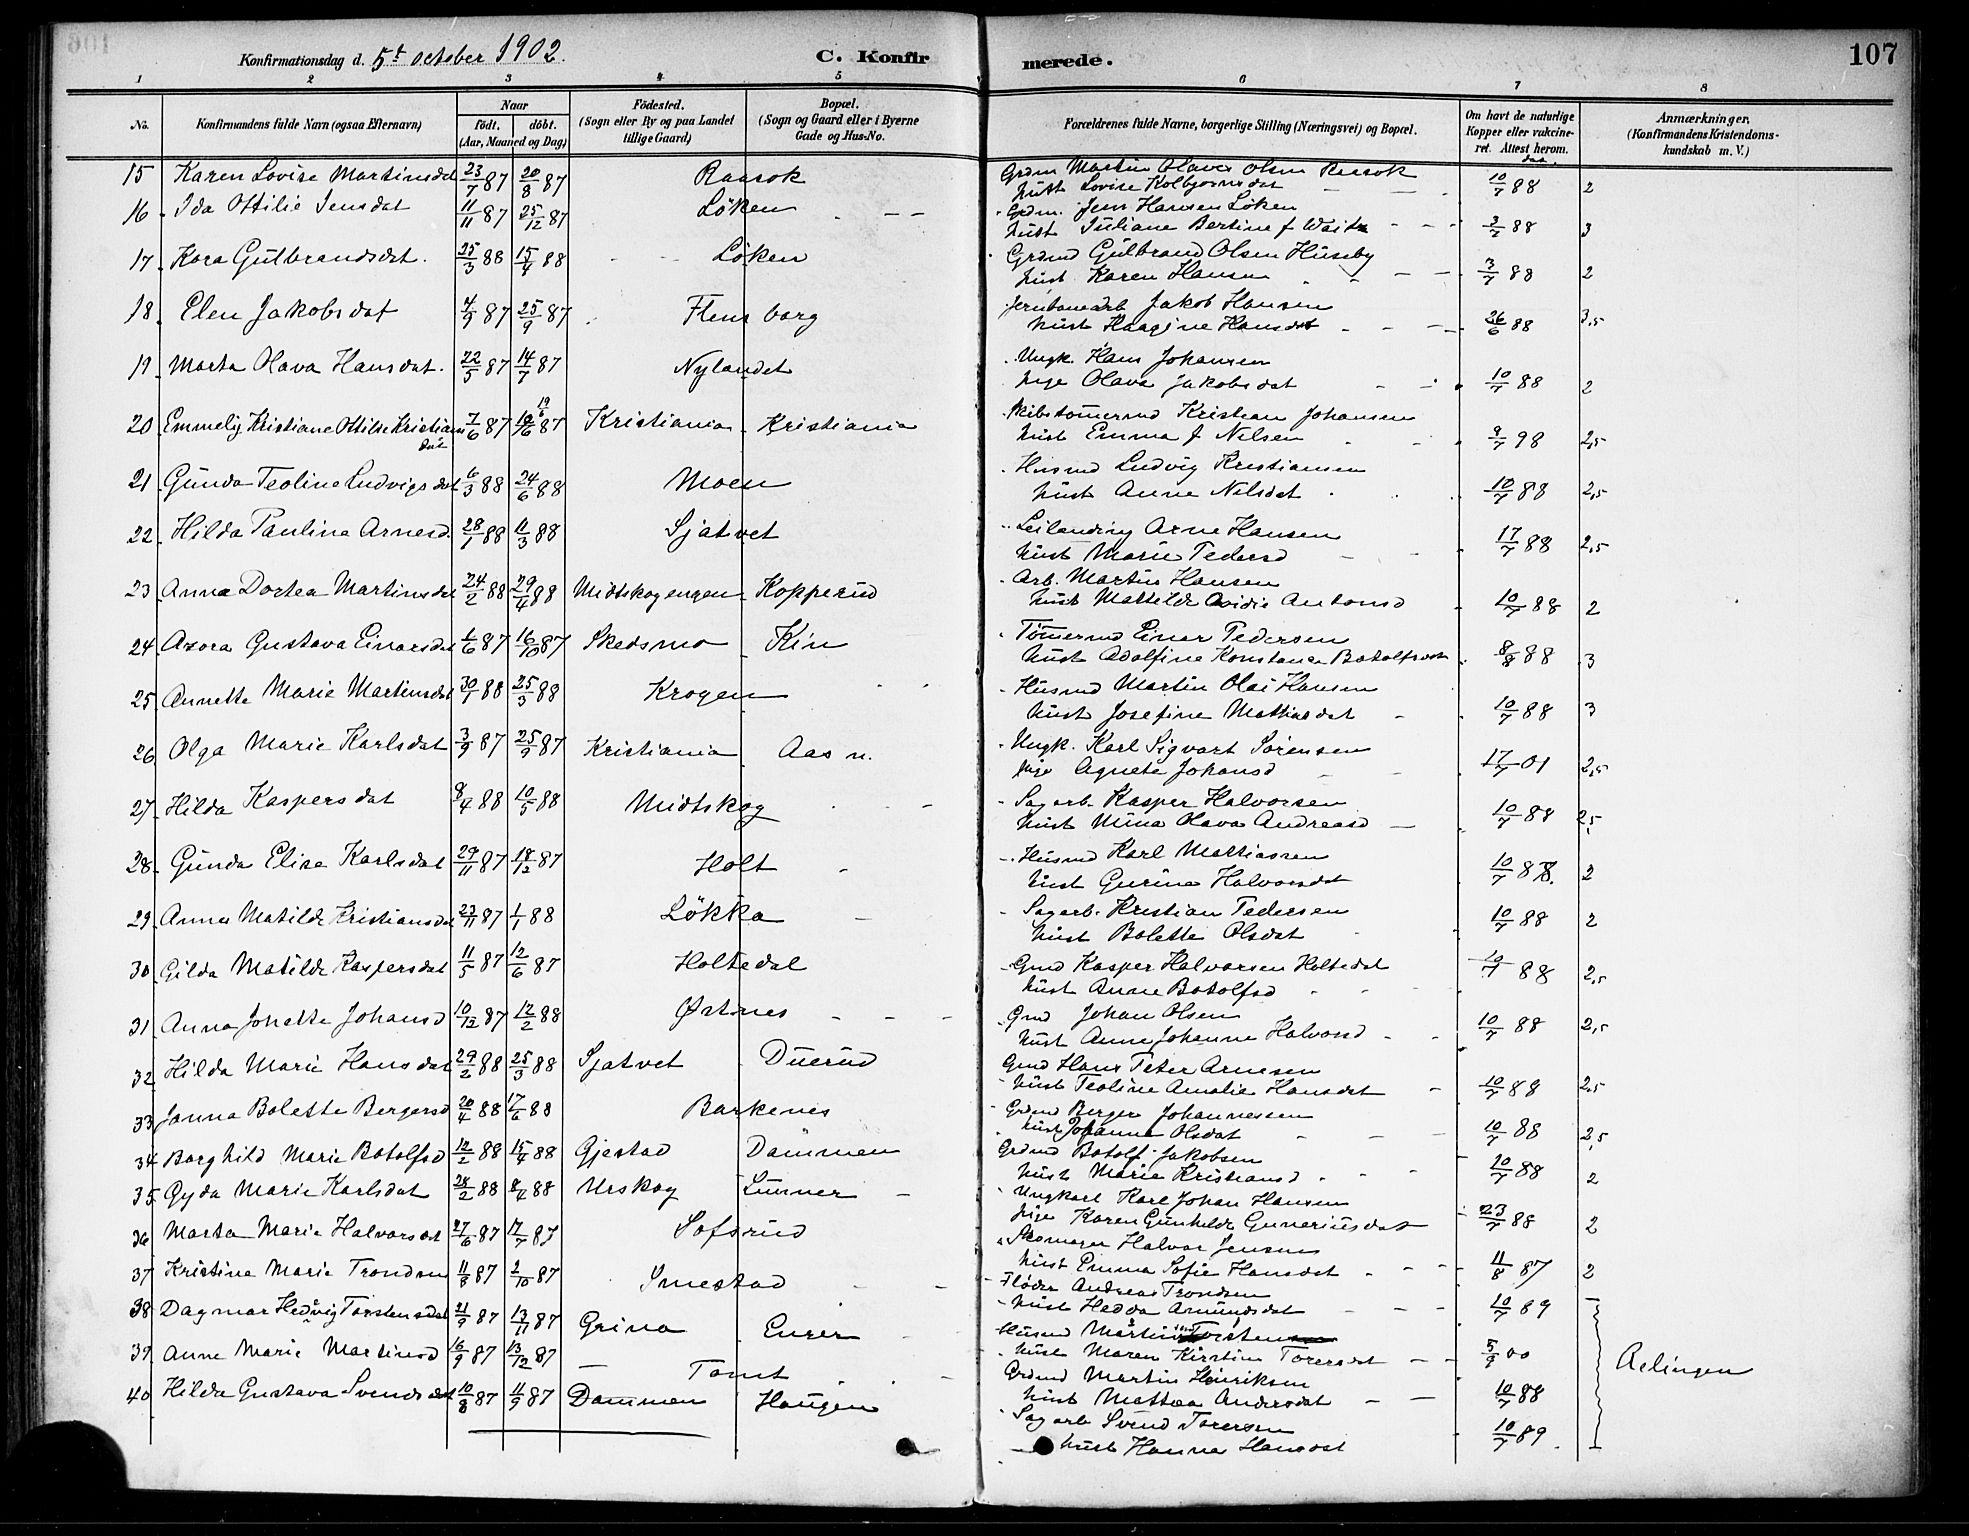 Konfirmationsdag d. 5t october 1902.
C. Konfirmerede.
107
1 2 3 4 5 6 7 8
No.
Konfirmandens fulde Navn (ogsaa Efternavn)
Naar
födt. döbt.
(Aar, Maaned og Dag)
Födested.
(Sogn eller By og paa Landet
tillige Gaard)
Bopæl.
(Sogn og Gaard eller i Byerne
Gade og Hus-No.
Forældrenes fulde Navne, borgerlige Stilling (Næringsvei) og Bopæl.
Om havt de naturlige
Kopper eller vakcine-
ret. Attest herom.
Anmærkninger.
(Konfirmandens Kristendoms-
kundskab m. V.)
15 Karen Lovise Martinsdat 23/7 87 20/8 87 Raasok Grdm Martin Olaves Olsen 10/7 88 2
hust Lovise Kolbjørnsdat
16 Ida Ottilie Jensdat 11/11 87 25/12 87 Löken Grdm. Jens Hansen Löken 3/7 88 3
hust Juliane Bertine f
17 Kora Gulbrandsdat. 25/3 88 15/4 88 Löken Grdmd Gulbrand Olsen Huseby
hust Karen Hansen 3/7 88 2
18 Elen Jakobsdat 4/9 87 25/9 87 Flensborg Jernbanearb Jakob Hansen
hust Haagine Hansdat 26/6 88 3,5
19 Marta Olava Hansdat. 22/5 87 14/7 87 Nylandet Ungk. Hans Johansen
pige Olava Jakobsdat 10/7 88 2
20 Emmely Kristiane Ottilie Kristiansdat 7/6 87 19/6 87 Kristiania Kristiania Skibstømermd Kristian Johansen
hust Emma f Nilsen 9/7 98 2,5
21 Gunda Teoline Ludvigsdat 6/3 88 24/6 88 Moen Husmd Ludvig Kristiansen
hust Anne Nilsdat 10/7 88 2,5
22 Hilda Pauline Arnesd. 28/1 88 11/3 88 Sjatvet Leilænding Arne Hansen
hust Marie Pedersd 17/7 88 2,5
23 Anna Dortea Martinsdat 24/2 88 29/4 88 Midtskogengen Kopperud Arb. Martin Hansen
hust Matilde Ovidie Antonsd 10/7 88 2
24 Azora Gustava Einarsdat 1/6 87 16/10 87 Skedsmo Kin Tømermd Einar Pedersen
hust Adolfine Konstanse Botolfsdat 8/8 88 3
25 Annette Marie Martinsdat 30/1 88 25/3 88 Krogen Husmd Martin Olai Hansen
hust Josefine Mattiasdat 10/7 88 3
26 Olga Marie Karlsdat 3/9 87 25/9 87 Kristiania Aas n. Ungk. Karl Sigvart Sörensen
pige Agnete Johansd 17/7 01 2,5
27 Hilda Kaspersdat 8/4 88 10/5 88 Midtskog Sagarb. Kasper Halvorsen
hust Mina Olava Andreasd 10/7 88 2,5
28 Gunda Elise Karlsdat 29/11 87 18/12 87 Holt Husmd Karl Mattiassen
hust Gurine Halvorsdat 10/7 88. 2
29 Anna Matilde Kristiansdat 23/11 87 1/1 88 Lökka Sagarb. Kristian Pedersen
hust Bolette Olsdat 10/7 88 2
30 Gilda Matilde Kaspersdat 11/5 87 12/6 87 Holtedal Gmd Kasper Halvorsen Holtedal
hust Anne Botolfsd 10/7 88 2,5
31 Anna Jonette Johansd 10/12 87 12/2 88 Østnes Gmd Johan Olsen
hust Anne Johanne Halvorsd 10/7 88 2,5
32 Hilda Marie Hansdat 29/2 88 25/3 88 Sjatvet Duerud Gmd Hans Peter Arnesen
hust Teoline Amalie Hansdat 10/7 89 2,5
33 Janna Bolette Bergersd 20/4 88 17/6 88 Barkenes Grdmd Berger Johannessen
hust Johanne Olsdat 10/7 88 2,5
34 Borghild Marie Botolfsd 12/2 88 15/4 88 Gjestad Dammen Grdmd Botolf Jakobsen
hust Marie Kristiansd 10/7 88 2
35 Gyda Marie Karlsdat 28/2 88 8/4 88 Urskog Lunner Ungkarl Karl Johan Hansen
pige Karen Gunhilde Guneriusdat 23/7 88 2
36 Marta Marie Halvorsdat 27/6 87 17/7 87 Sofsrud Skomager Halvor Jensen
hust Emma Sofie Hansdat 11/8 87 2
37 Kristine Marie Trondsen 11/8 87 2/10 87 Smestad Fløder Andreas Trondsen
hust Hedda Amundsdat 10/7 89
38 Dagmar Hedvig Torstensdat 21/9 87 13/11 87 Grina Eurer Husmd Martin Torsten
hust Maren Kirstine Torersdat 5/9 00
39 Anne Marie Martinsd 16/9 87 13/12 87 — Tomt Grdmd Martin Henriksen
hust Mattea Andersdat 10/7 88
Aelingen
40 Hilda Gustava Svendsdat 10/8 87 11/9 87 Dammen Haugen Sagarb Svend Torersen
hust Hanna Hansdat 10/7 89.